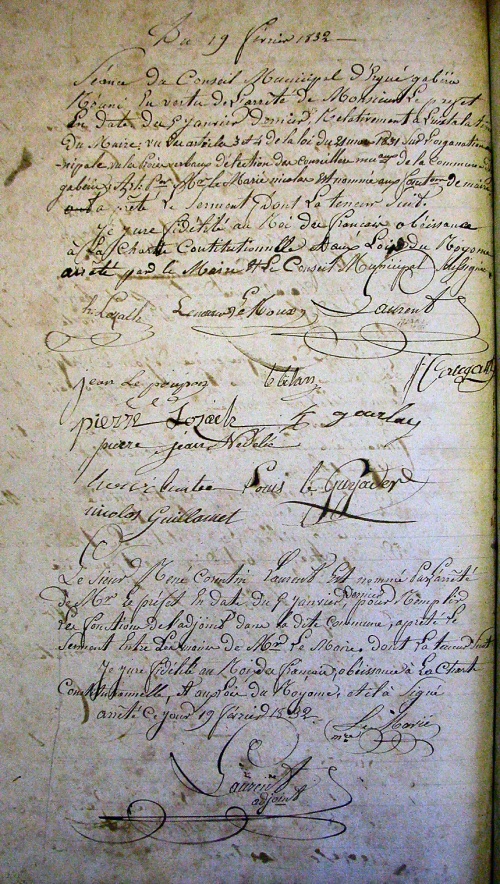 Du 19 février 1832 —
Séance du Conseil Municipal d'Ergué gabéric
Réuni En vertu de L'arrêté de Monsieur Le préfet
En date du 5 janvier dernier Relativement à
Du Maire, vu Les articles 3 et 4 de la loi du 21 mars 1831 Sur L'organisation
nicipale vu la procès verbaux d'élection des conseillers de la Commune d'
gabéric Mr Le Marié nicolas Est nommée aux fonctions de maire
a prêté Le Serment dont La teneur Suit.
Je jure fidélité au Roi des français obéissance
à La Charte Constitutionnelle Et aux Lois du Royaume
arrêté par le Maire Et Le Conseil Municipal
Laurent
jean Le poupon
pierre Lozach gourlay
pierre jean Nédélec
Louis le Guyader
nicolas Guillamet
Le Sieur René Corentin Laurent Est nommé par L'arrêté
de Mr Le préfet En date du 5 janvier dernier, pour Remplir
Les fonctions d'adjoint dans la dite commune, a prêté le
Serment Entre Les mains de Mr Le Maire, dont La teneur Suit
Je jure fidélité au Roi des français, obéissance à La Charte
Constitutionnelle, Et aux lois du Royaume, et à Signé
arrêté Ce jour 19 février 1832 —
Le Marié
mre
Laurent
adjoint